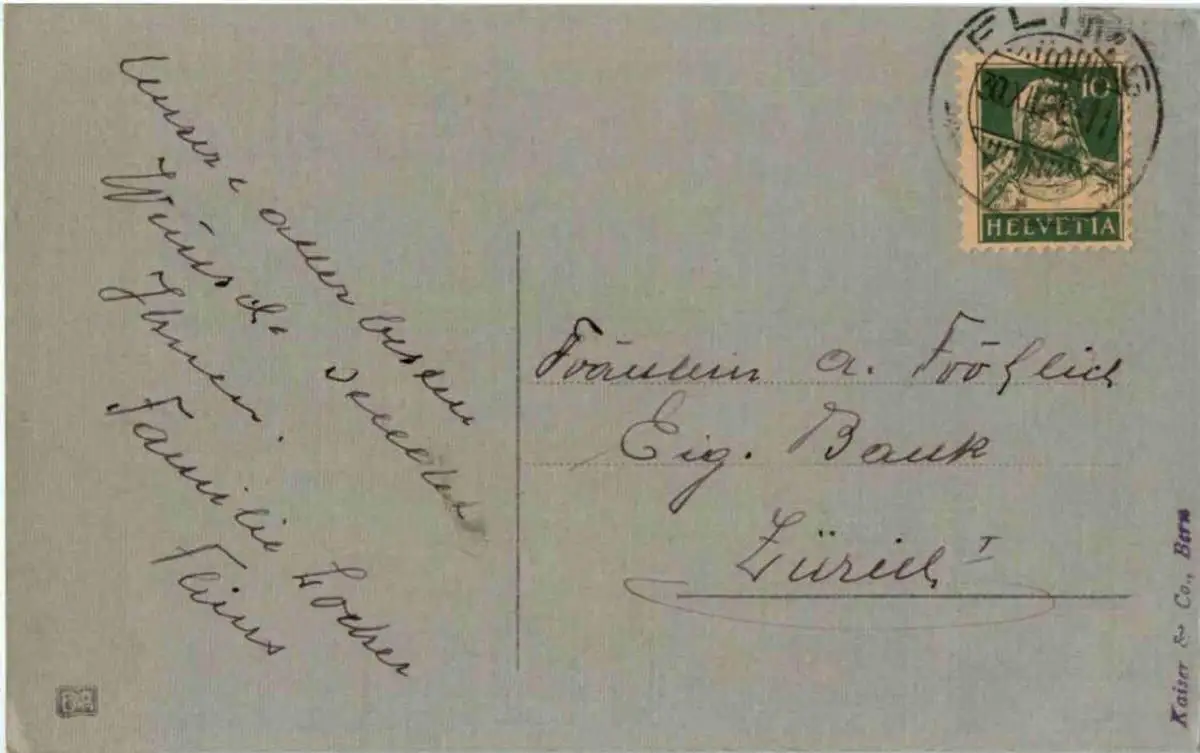 Unser aller besten
Wünsche sendet
Ihnen.
Familie Locher
Flims
FLIMS
10
HELVETIA
Fräulein A. Fröhlich
Eig. Bank
Zürich I
Kaiser & Co., Bern